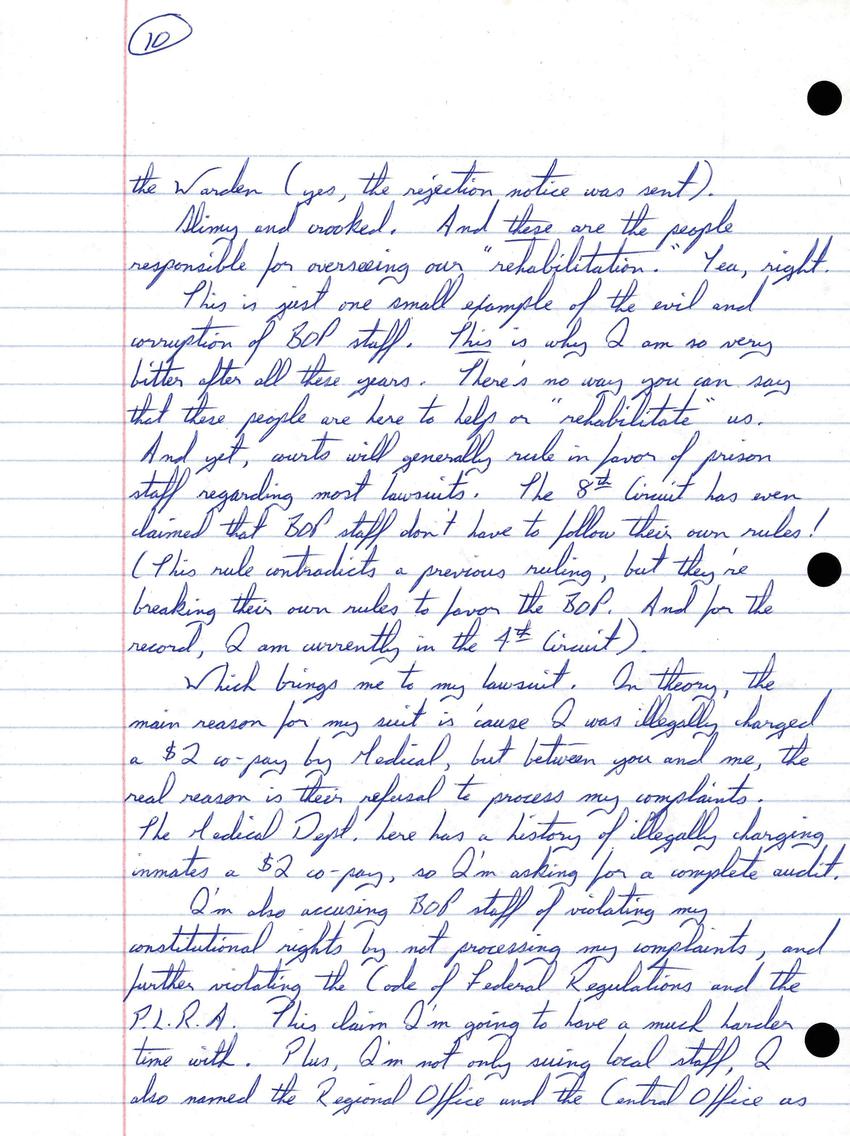 10
the Warden (yes, the rejection notice was sent).
Slimy and crooked. And these are the people
responsible for overseeing our "rehabilitation." Yea, right.
This is just one small example of the evil and
corruption of BOP staff. This is why I am so very
bitter after all these years. There's no way you can say
that these people are here to help or "rehabilitate" us.
And yet, courts will generally rule in favor of prison
staff regarding most lawsuits. The 8th Circuit has even
claimed that BOP staff don't have to follow their own rules!
(This rule contradicts a previous ruling, but they're
breaking their own rules to favor the BOP. And for the
record, I am currently in the 4th Circuit).
Which brings me to my lawsuit. In theory, the
main reason for my suit is 'cause I was illegally charged
a $2 co-pay by Medical, but between you and me, the
real reason is their refusal to process my complaints.
The Medical Dept. here has a history of illegally charging
inmates a $2 co-pay, so I'm asking for a complete audit.
I'm also accusing BOP staff of violating my
constitutional rights by not processing my complaints, and
further violating the Code of Federal Regulations and the
P.L.R.A. This claim I'm going to have a much harder
time with. Plus, I'm not only suing local staff, I
also named the Regional Office and the Central Office as